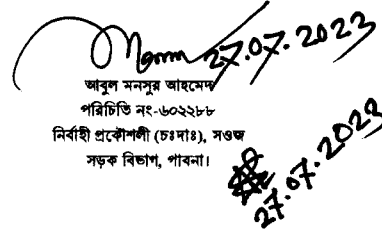 27.07.2023
আবুল মনসুর আহমেদ
পরিচিতি নং-৬০২২৮৮
নির্বাহী প্রকৌশলী (চঃদাঃ), সওজ
সড়ক বিভাগ, পাবনা।
27.07.2023